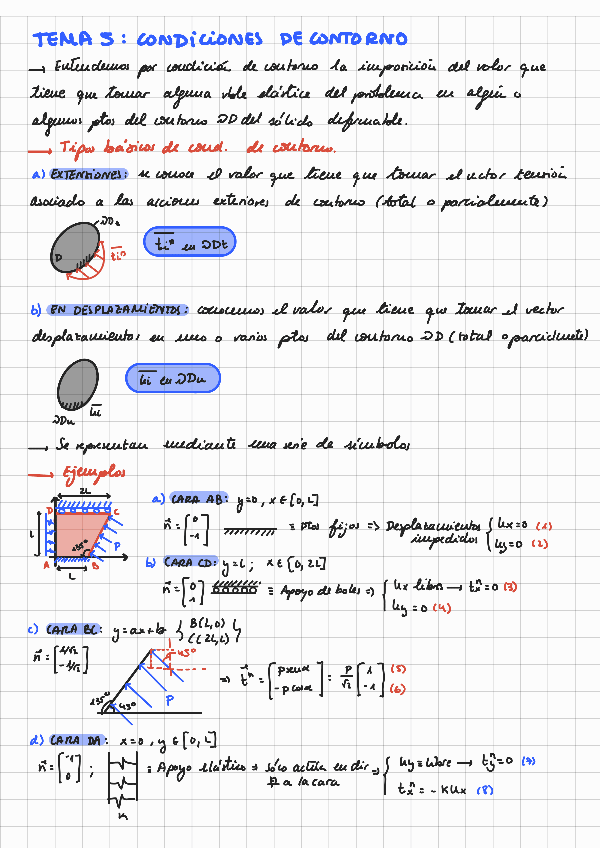 TEMA 5: CONDICIONES DE CONTORNO
→ Entendemos por condición de contorno la imposición del valor que
tiene que tomar alguna vble elástica del problema en algún o
algunos ptos del contorno ∂D del sólido deformable.
→ Tipos básicos de cond. de contorno.
a) EXTENSIONES: se conoce el valor que tiene que tomar el vector tensión
asociado a las acciones exteriores de contorno (total o parcialmente)
∂Dt
D
ti^n
ti^n en ∂Dt
b) EN DESPLAZAMIENTOS: conocemos el valor que tiene que tomar el vector
desplazamientos en uno o varios ptos del contorno ∂D (total o parcialmente)
ui en ∂Du
∂Du ui
→ Se representan mediante una serie de símbolos
→ Ejemplos
2L
D C
L
135°
P
A B
L
a) CARA AB: y=0, x∈[0, L]
n = [0 -1] ≡ Ptos fijos => Desplazamientos impedidos { ux=0 (1)
uy=0 (2)
b) CARA CD: y=L; x∈[0, 2L]
n = [0 1] ≡ Apoyo de bolas => { ux libre → tx^n=0 (3)
uy=0 (4)
c) CARA BC: y=ax+b { B(L,0)
C(2L,L) }
n = [1/√2 -1/√2]
45°
135° 45° P
=> t^n = [p senα -p cosα] = P/√2 [1 -1] (5)
(6)
d) CARA DA: x=0, y∈[0, L]
n = [-1 0]; ≡ Apoyo elástico => sólo actúa en dir => { uy ≡ libre → ty^n=0 (7)
a la cara
tx^n = -K ux (8)
K